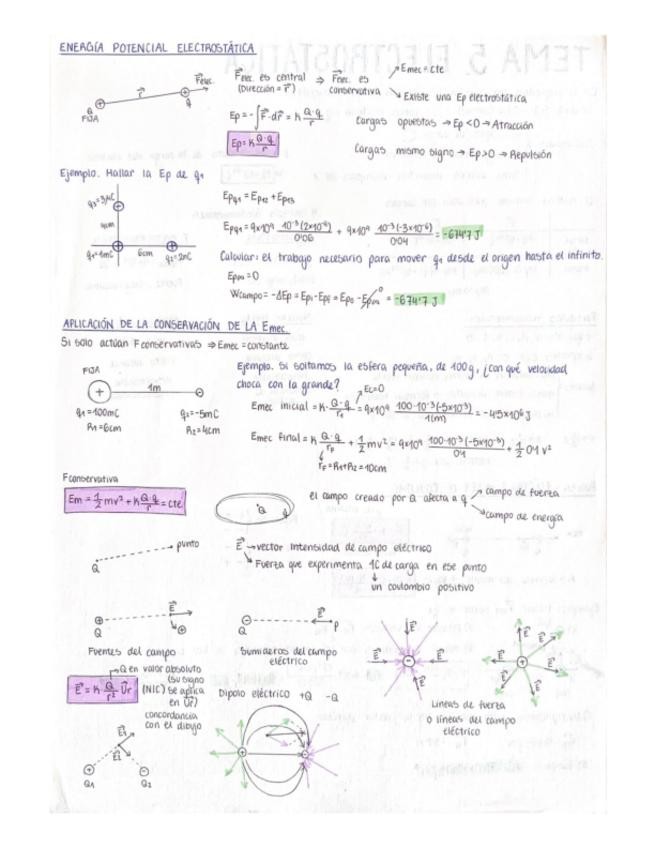 ENERGÍA POTENCIAL ELECTROSTÁTICA
Q FIJA
r⃗
F⃗elec.
q
F⃗elec. es central ⇒ F⃗elec. es
(Dirección = r⃗) conservativa
Emec = cte
Existe una Ep electrostática
Ep = -∫F⃗·dr⃗ = K Q·q/r
Ep = K Q·q/r
Cargas opuestas → Ep < 0 → Atracción
Cargas mismo signo → Ep > 0 → Repulsión
Ejemplo. Hallar la Ep de q1
4cm
q1 = 1mC
6cm
q2 = 2nC
Epq1 = Ep12 + Ep13
Epq1 = 9x10⁹ 10⁻³(2x10⁻⁶)/0'06 + 9x10⁹ 10⁻³(-3x10⁻⁶)/0'04 = -674'7 J
Calcular: el trabajo necesario para mover q1 desde el origen hasta el infinito.
Ep∞ = 0
Wcampo = -ΔEp = Epi - Epf = Ep0 - Ep∞ = -674'7 J
0
APLICACIÓN DE LA CONSERVACIÓN DE LA Emec.
Si solo actúan F conservativas ⇒ Emec = constante
FIJA
1m
q1 = 100mC
q2 = -5mC
R1 = 6cm
R2 = 4cm
Ejemplo. Si soltamos la esfera pequeña, de 100g, ¿con qué velocidad
choca con la grande?
Ec=0
Emec inicial = K Q·q/ri = 9x10⁹ 100·10⁻³(-5x10⁻³)/1(m) = -4'5x10⁶ J
Emec final = K Q·q/rf + 1/2 mv² = 9x10⁹ 100·10⁻³(-5x10⁻³)/0'1 + 1/2 0'1 v²
rf = R1 + R2 = 10cm
Fconservativa
Em = 1/2 mv² + K Q·q/r = cte
Q q
el campo creado por Q afecta a q
campo de fuerza
campo de energía
Q
punto
E⃗ → vector intensidad de campo eléctrico
Fuerza que experimenta 1C de carga en ese punto
un coulombio positivo
Q
E⃗
Q
E⃗
P
Fuentes del campo
Sumideros del campo
eléctrico
E⃗ = K Q/r² U⃗r
Q en valor absoluto
(su signo
(NIC) se aplica
en U⃗r)
concordancia
con el dibujo
Dipolo eléctrico +Q -Q
Líneas de fuerza
o líneas del campo
eléctrico
E⃗1
E⃗2
Q1
Q2